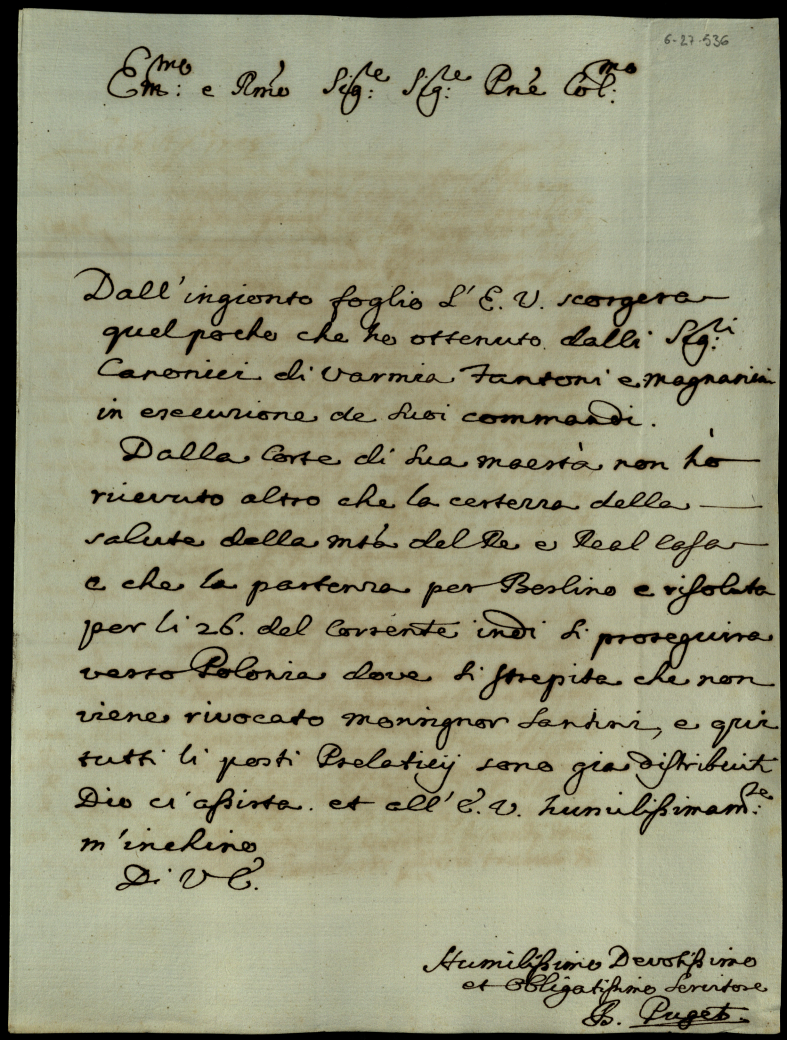 6-27-536
Em:mo e Rmo Sig:re Sig:re Pne Col:mo
Dall'ingionto foglio L'E. V. scorgera
quel pocho che ho ottenuto dalli Sig:ri
Canonici di Varmia Fantoni e magnanini
in esecuzione de Suoi commandi.
Dalla Corte di Sua maestà non hò
ricevuto altro che la certezza della
salute della mtà del Re e Real Casa
e che la partenza per Berlino e risoluta
per li 26. del Corrente indi si proseguira
verso Polonia dove si strepita che non
viene rivocato monsignor Santini, e qui
tutti li posti Prelaticij sono gia distribuiti
Dio ci assista. et all'E. V. humilissimam:te
m'inchino
Di V E.
Humilissimo Devotissimo
et obligatissimo Servitore
B. Puget.